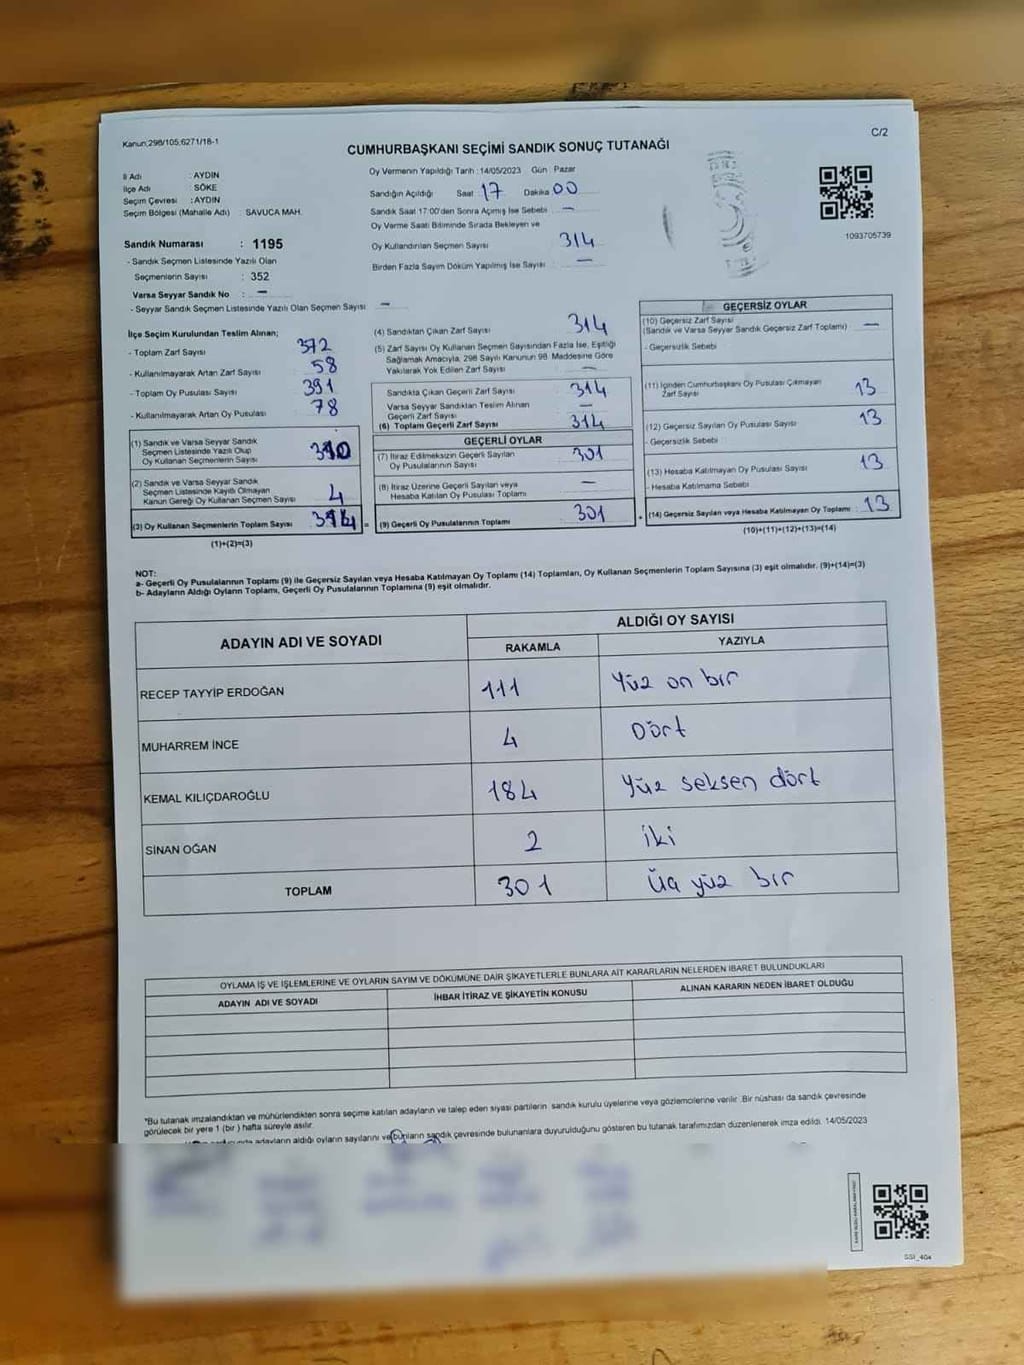 Kanun;298/105;6271/18-1
C/2
CUMHURBAŞKANI SEÇİMİ SANDIK SONUÇ TUTANAĞI
İl Adı : AYDIN
İlçe Adı : SÖKE
Seçim Çevresi : AYDIN
Seçim Bölgesi (Mahalle Adı) : SAVUCA MAH.
Sandık Numarası : 1195
- Sandık Seçmen Listesinde Yazılı Olan
Seçmenlerin Sayısı : 352
Varsa Seyyar Sandık No : –
- Seyyar Sandık Seçmen Listesinde Yazılı Olan Seçmen Sayısı –
Oy Vermenin Yapıldığı Tarih :14/05/2023 Gün Pazar
Sandığın Açıldığı Saat 17 Dakika 00
Sandık Saat 17:00'den Sonra Açımış İse Sebebi –
Oy Verme Saati Bitiminde Sırada Bekleyen ve
Oy Kullandırılan Seçmen Sayısı 314
Birden Fazla Sayım Döküm Yapılmış İse Sayısı –
1093705739
İlçe Seçim Kurulundan Teslim Alınan;
- Toplam Zarf Sayısı 372
- Kullanılmayarak Artan Zarf Sayısı 58
- Toplam Oy Pusulası Sayısı 391
- Kullanılmayarak Artan Oy Pusulası 78
(1) Sandık ve Varsa Seyyar Sandık
Seçmen Listesinde Yazılı Olup
Oy Kullanan Seçmenlerin Sayısı 310
(2) Sandık ve Varsa Seyyar Sandık
Seçmen Listesinde Kayıtlı Olmayan
Kanun Gereği Oy Kullanan Seçmen Sayısı 4
(3) Oy Kullanan Seçmenlerin Toplam Sayısı 314 =
(1)+(2)=(3)
(4) Sandıktan Çıkan Zarf Sayısı 314
(5) Zarf Sayısı Oy Kullanan Seçmen Sayısından Fazla İse, Eşitliği
Sağlamak Amacıyla, 298 Sayılı Kanunun 98. Maddesine Göre
Yakılarak Yok Edilen Zarf Sayısı –
Sandıkta Çıkan Geçerli Zarf Sayısı 314
Varsa Seyyar Sandıktan Teslim Alınan
Geçerli Zarf Sayısı –
(6) Toplam Geçerli Zarf Sayısı 314
GEÇERLİ OYLAR
(7) İtiraz Edilmeksizin Geçerli Sayılan
Oy Pusulalarının Sayısı 301
(8) İtiraz Üzerine Geçerli Sayılan veya
Hesaba Katılan Oy Pusulası Toplamı –
(9) Geçerli Oy Pusulalarının Toplamı 301 +
GEÇERSİZ OYLAR
(10) Geçersiz Zarf Sayısı
(Sandık ve Varsa Seyyar Sandık Geçersiz Zarf Toplamı) –
- Geçersizlik Sebebi
(11) İçinden Cumhurbaşkanı Oy Pusulası Çıkmayan
Zarf Sayısı 13
(12) Geçersiz Sayılan Oy Pusulası Sayısı 13
- Geçersizlik Sebebi
(13) Hesaba Katılmayan Oy Pusulası Sayısı 13
- Hesaba Katılmama Sebebi
(14) Geçersiz Sayılan veya Hesaba Katılmayan Oy Toplamı : 13
(10)+(11)+(12)+(13)=(14)
NOT:
a- Geçerli Oy Pusulalarının Toplamı (9) ile Geçersiz Sayılan veya Hesaba Katılmayan Oy Toplamı (14) Toplamları, Oy Kullanan Seçmenlerin Toplam Sayısına (3) eşit olmalıdır. (9)+(14)=(3)
b- Adayların Aldığı Oyların Toplamı, Geçerli Oy Pusulalarının Toplamına (9) eşit olmalıdır.
ADAYIN ADI VE SOYADI
ALDIĞI OY SAYISI
RAKAMLA YAZIYLA
RECEP TAYYİP ERDOĞAN 111 Yüz on bir
MUHARREM İNCE 4 Dört
KEMAL KILIÇDAROĞLU 184 Yüz seksen dört
SİNAN OĞAN 2 iki
TOPLAM 301 Üç yüz bir
OYLAMA İŞ VE İŞLEMLERİNE VE OYLARIN SAYIM VE DÖKÜMÜNE DAİR ŞİKAYETLERLE BUNLARA AİT KARARLARIN NELERDEN İBARET BULUNDUKLARI
ADAYIN ADI VE SOYADI İHBAR İTİRAZ VE ŞİKAYETİN KONUSU ALINAN KARARIN NEDEN İBARET OLDUĞU
*Bu tutanak imzalandıktan ve mühürlendikten sonra seçime katılan adayların ve talep eden siyasi partilerin sandık kurulu üyelerine veya gözlemcilerine verilir. Bir nüshası da sandık çevresinde
görülecek bir yere 1 (bir) hafta süreyle asılır.
adayların aldığı oyların sayılarını ve bunların sandık çevresinde bulunanlara duyurulduğunu gösteren bu tutanak tarafımızdan düzenlenerek imza edildi. 14/05/2023
SSI_40a